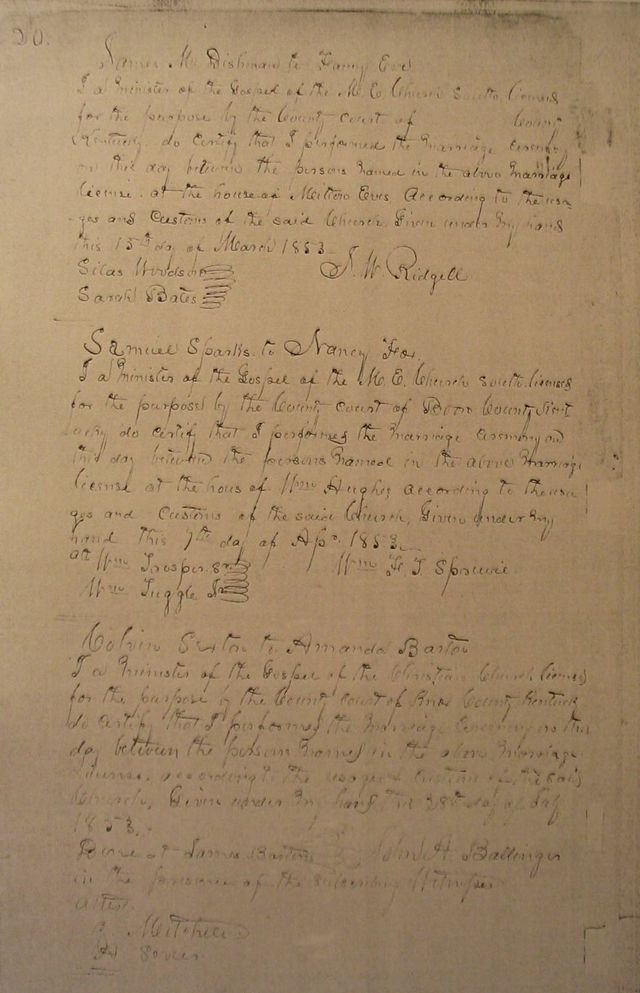 20.
James M. Dishman to Fanny Eve
I a Minister of the Gospel of the M. E. Church South licensed
for the purpose by the County Court of County
Kentucky do certify that I performed the Marriage ceremony
on this day between the persons named in the above Marriage
license. at the house of Milton Eves According to the usa
-ges and Customs of the said Church, Given under My hand
this 15th day of March 1853
Silas Woodson
J. W. Ridgell
Sarah Bates
Samuel Sparks to Nancy Fox.
I a Minister of the Gospel of the M. E. Church South licensed
for the purpose by the County Court of County Kent
ucky do certify that I performed the Marriage Ceremony on
this day between the persons named in the above Marriage
license at the hous of Wm Hughes according to the usa
ges and Customs of the said Church, Given under My
hand this 7th day of Apr. 1853
att Wm Prosper Sr
Wm F. T.
Wm Tuggle Sr
Colvin Sexton to Amanda Barton
I a Minister of the Gospel of the Christian Church licensed
for the purpose by the County Court of Knox County Kentucky
do certify that I performed the Marriage Ceremony on this
day between the persons named in the above Marriage
License. according to the usages & Customs of the said
Church, Given under My hand this 28th day of
1853.
Done at James Bartons
John H Ballinger
in the presence of the subscribing Witnesses
attest.
Mitchell